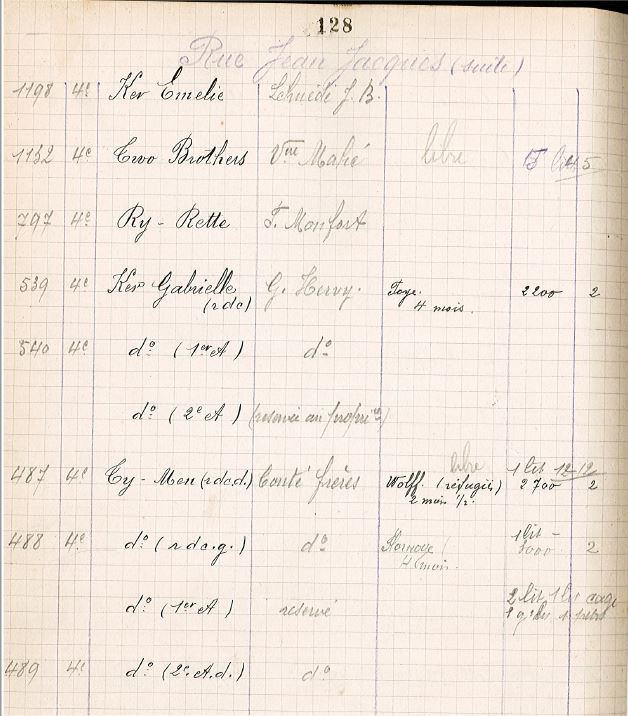 128
Rue Jean Jacques (suite)
1198 4e Ker Emelie J. B.
1132 4e Two Brothers Vve Mahé libre
797 4e Ry-Rette F. Monfort
539 4e Ker Gabrielle G. Hervy. 2200 2
(rdc) 4 mois.
540 4e do (1er A) do
do (2e A) (réservée au propre)
libre 1 lit 12/12
487 4e Ty-Men (rdc.d.) Conté frères Wolff. (réfugiés) 2700 2
2 mois 1/2.
1 lit -
488 4e do (rdc.g.) do 3000 2
4 mois.
2 lits 1 lit cage
do (1er A) réservé
489 4e do (2e.A.d.) do